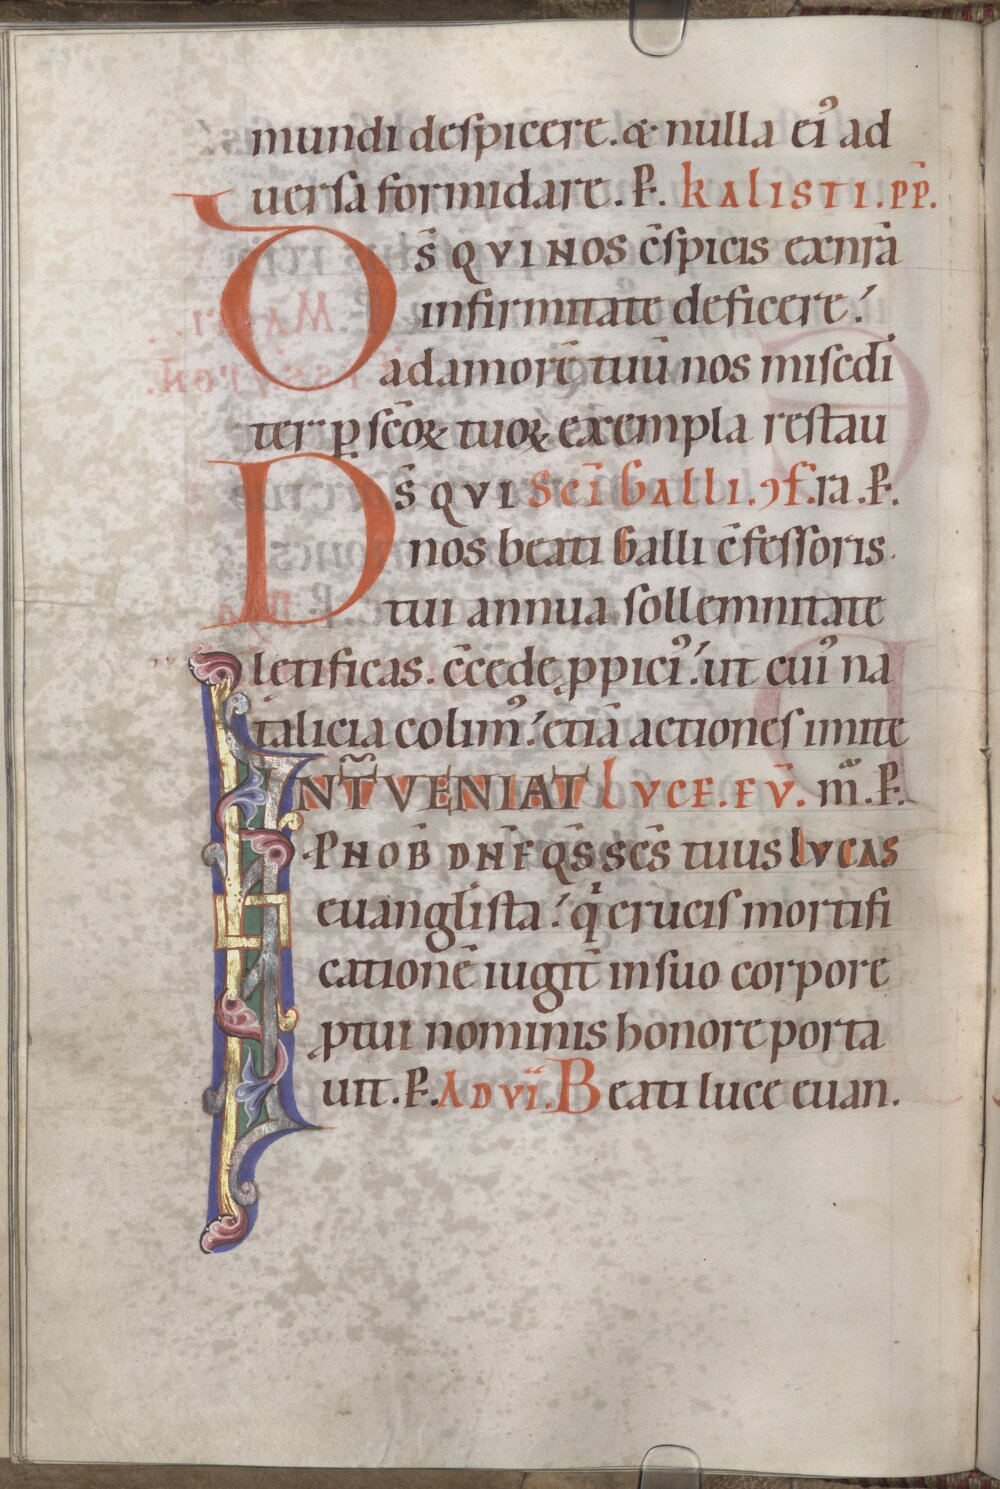 mundi despicere. & nulla ei᾽ ad
uersa formidare. P. KALISTI. PP̄.
DS̄ QVI NOS c̄spicis exnr̄a
infirmitate deficere!
adamorē tuū nos misc̄di
ter ꝑ sc̄oꝝ tuoꝝ exempla restau
DS̄ QVI SC̄I GALLI. ɔf. ra. P.
nos beati Galli c̄fessoris
tui annua sollemnitate
lętificas. c̄cede ꝓpici᾽! ut cui᾽ na
talicia colim᾽! etiā actiones imite
INT̄VENIAT LVCE. EV̄. m̄. P.
P NOB̄ DN̄E QS̄ SC̄S tuus LVCAS
euanglista! qͥ crucis mortifi
cationē iugit̄ insuo corpore
ꝓtui nominis honore porta
uit. P. AD VI. Beati luce euan.